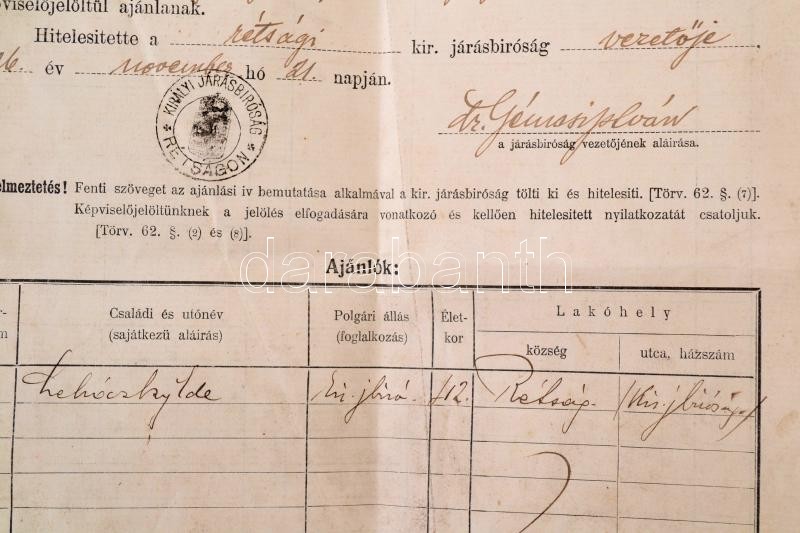 pviselőjelöltül ajánlanak.
Hitelesitette a rétsági kir. járásbiróság vezetője.
26. év november hó 21. napján.
KIRÁLYI JÁRÁSBIRÓSÁG
RÉTSÁGON
Dr.
a járásbiróság vezetőjének aláirása.
elmeztetés! Fenti szöveget az ajánlási iv bemutatása alkalmával a kir. járásbiróság tölti ki és hitelesiti. [Törv. 62. §. (7)].
Képviselőjelöltünknek a jelölés elfogadására vonatkozó és kellően hitelesitett nyilatkozatát csatoljuk.
[Törv. 62. §. (2) és (8)].
darabanth
Ajánlók:
Családi és utónév
(sajátkezü aláirás)
Polgári állás
(foglalkozás)
Élet-
kor
Lakóhely
község
utca, házszám
42. Rétság.